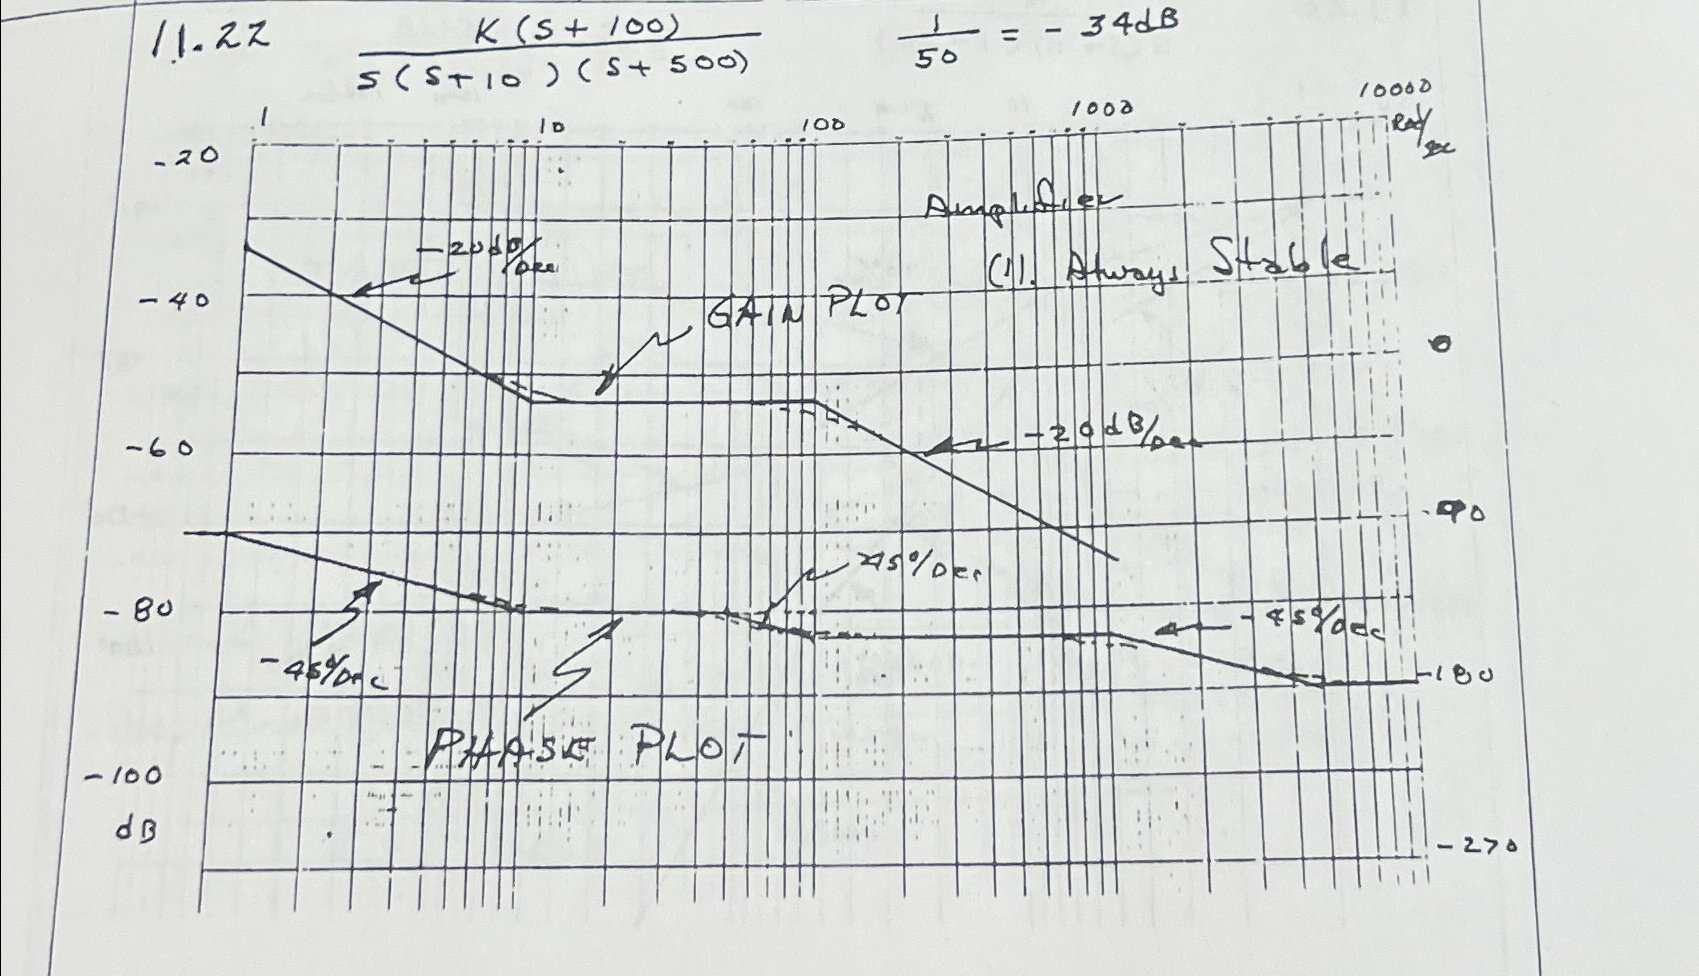 11.22
K(S+100)
S(S+10)(S+500)
1
50
= -34dB
1 10 100 1000 10000
Rad/sec
-20
Amplifier
-20dB/Dec
(1). Always Stable
-40
GAIN PLOT
0
-20dB/Dec
-60
-90
45°/Dec
-80
-45°/Dec
-45°/Dec
-180
PHASE PLOT
-100
dB
-270